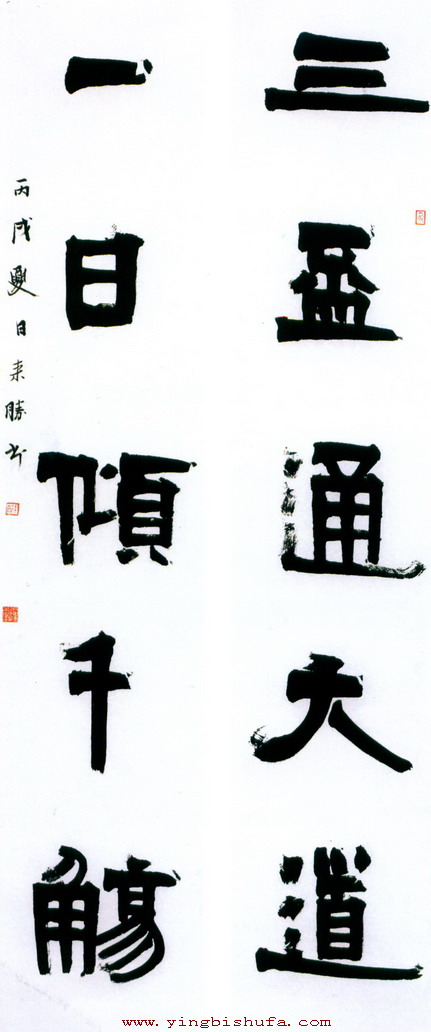 三盃通大道
一日傾千觴
丙戌夏日来勝书
www.yingbishufa.com